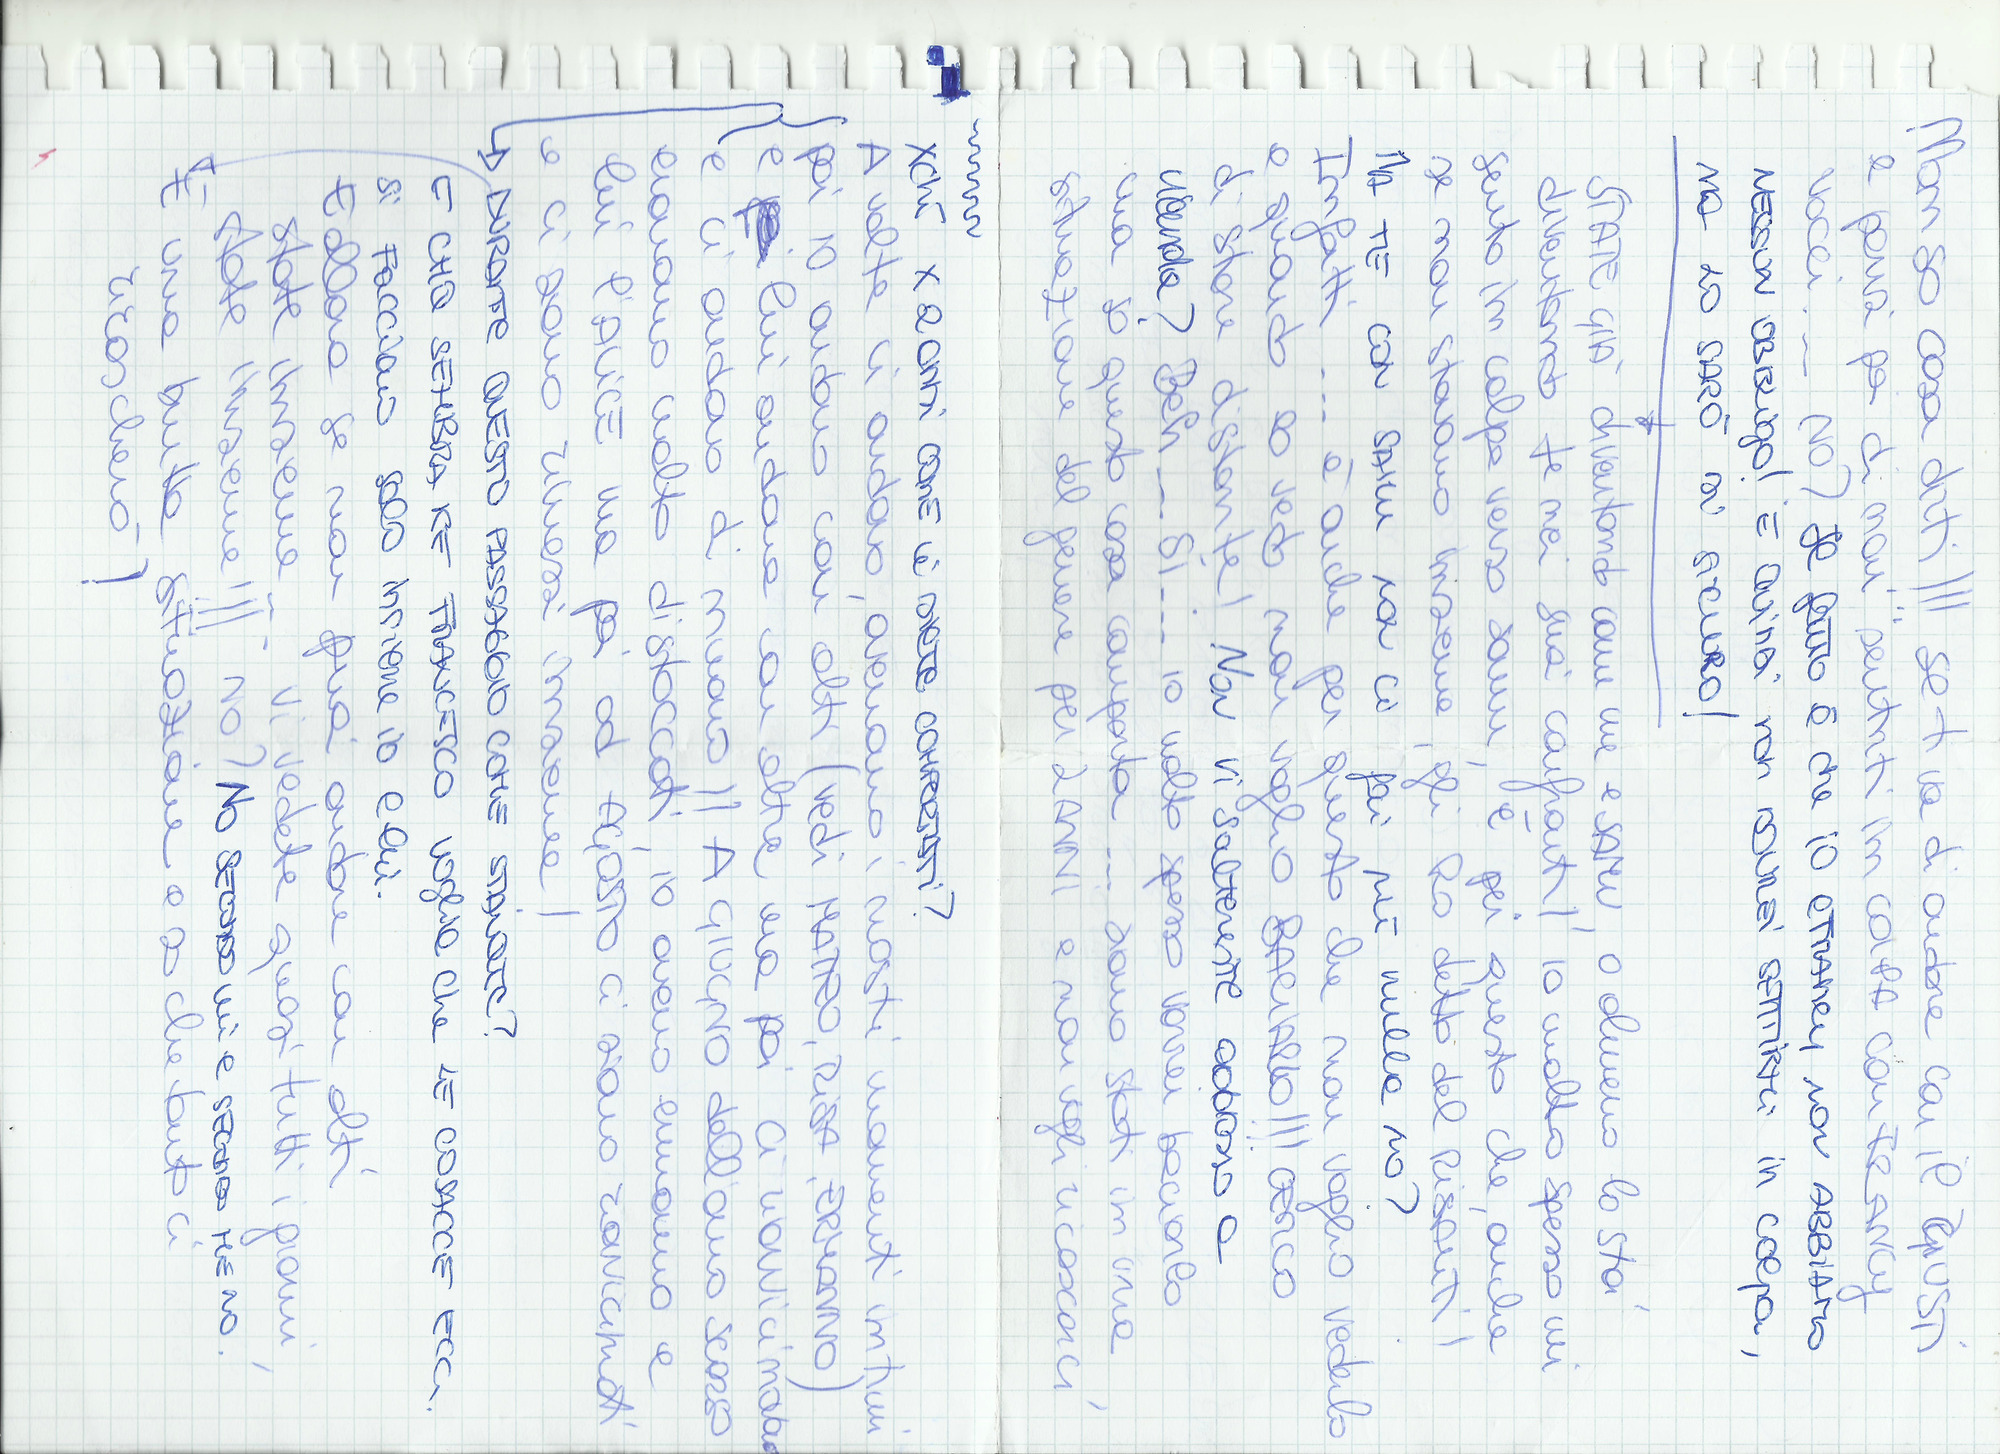 Non so cosa dirti!!! Se t va di andare con il Giusti
e pensi poi di non "sentirti in colpa con te ANCY
vacci... NO? Il fatto è che io ettiAMEN non ABBIAMO
NESSUN OBBLIGO! E QUINDI non DOVREI SENTIRMI in colpa,
MA LO SARÒ DI SICURO!
STATE già diventando come me e SAMU, o almeno lo stai
diventando te nei suoi confronti! Io molto spesso mi
sento in colpa verso Samu, è per questo che, anche
se non stavamo insieme, gli ho detto del Risaliti!
MA TE con SAMU non ci fai più nulla no?
Infatti... è anche per questo che non voglio vederlo
e quando lo vedo non voglio BACIARLO!!! CERCO
di stare distante! Non vi salterete addosso a
vicenda? Beh... Sì... io molto spesso vorrei baciarlo
ma so questo cosa comporta... siamo stati in una
situazione del genere per 2 ANNI e non vogli ricascarci,
XCHÉ X 2 ANNI COME VI SIETE COMPORTATI?
A volte ci andavo, avevamo i nostri momenti intimi
poi io andavo con altri (vedi MATTEO, RISA, ERMANNO)
e lui andava con altre, ma poi ci riavvicinavamo
e ci andavo di nuovo!! A GIUGNO dell'anno scorso
eravamo molto distaccati, io avevo Ermanno e
lui l'ALICE ma poi ad AGOSTO ci siamo riavvicinati
e ci siamo rimessi insieme!
→ DURANTE QUESTO PASSAGGIO COME STAVATE?
E CHE SEMBRA KE FRANCESCO voglia che LE COSACCE ECC.
SI FACCIANO SOLO INSIEME IO E LUI.
E allora se non vuoi andare con altri
state insieme... vi vedete quasi tutti i giorni,
state insieme!!! NO? NO SECONDO LUI E SECONDO ME NO.
È una brutta situazione e so che tanto ci
ricascherò!